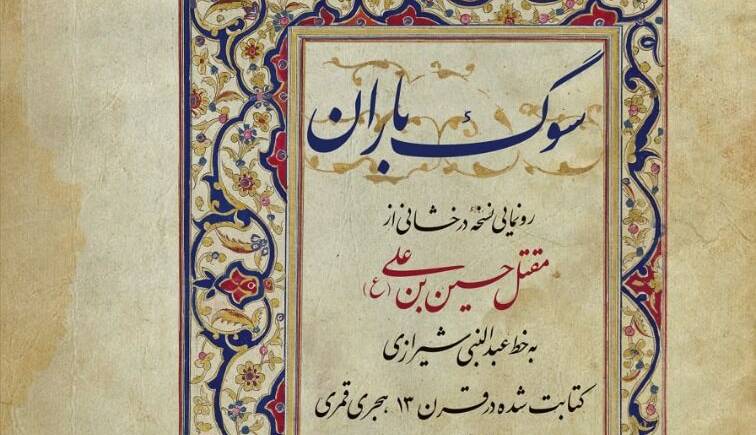 سوگ باران
رونمایی نسخهٔ درخشانی از
مقتل حسین بن علی (ع)
به خط عبدالنبی شیرازی
کتابت شده در قرن ۱۳ هجری قمری